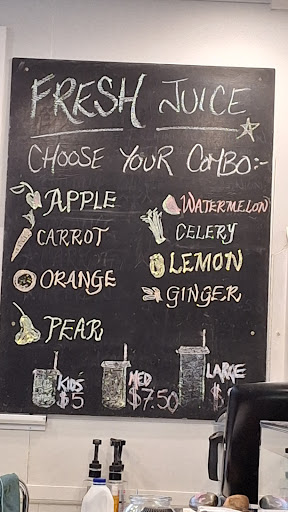 FRESH JUICE
CHOOSE YOUR COMBO:-
APPLE
CARROT
ORANGE
PEAR
WATERMELON
CELERY
LEMON
GINGER
KIDS
$5
MED
$7.50
LARGE
$